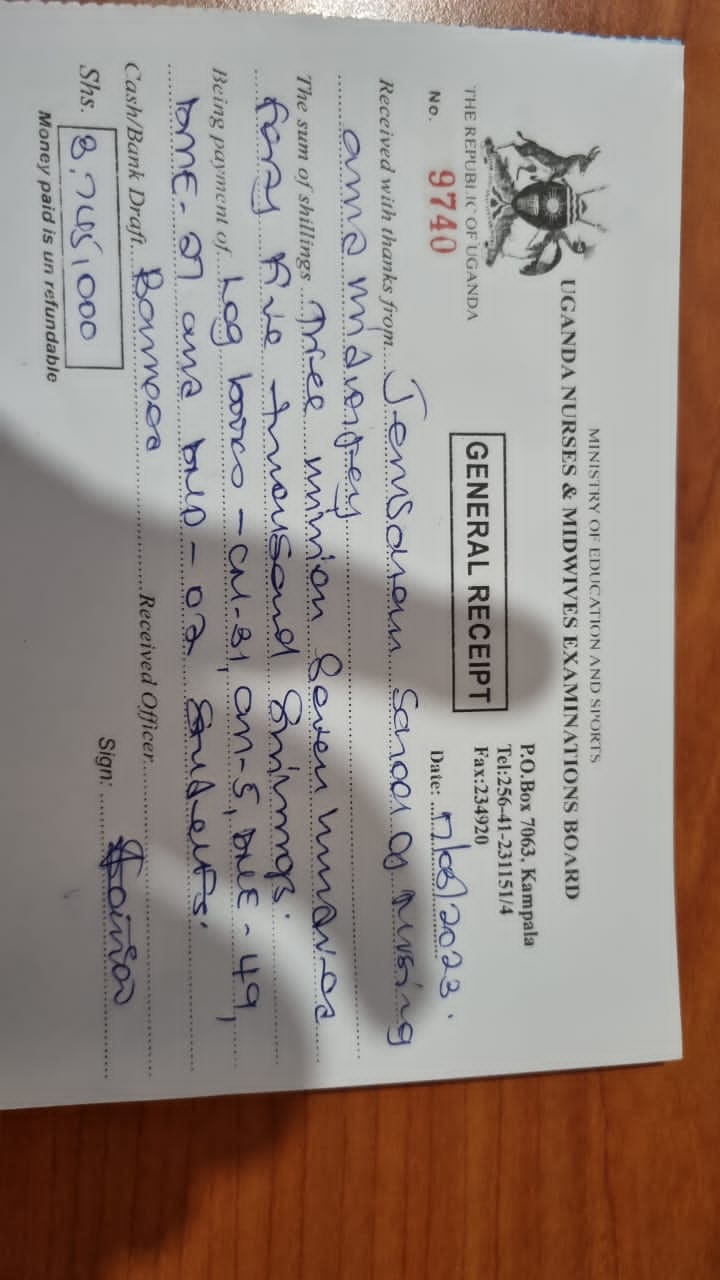 MINISTRY OF EDUCATION AND SPORTS
UGANDA NURSES & MIDWIVES EXAMINATIONS BOARD
THE REPUBLIC OF UGANDA
P.O.Box 7063, Kampala
Tel:256-41-231151/4
Fax:234920
GENERAL RECEIPT
No. 9740
Date: 17/08/2023.
Received with thanks from School of Nursing
and midwifery
The sum of shillings Three million Seven hundred
Forty Five thousand Shillings.
Being payment of Log books - CM-31, CN-5, DME-49,
and 02 Students.
Cash/Bank Draft
Received Officer
Shs.
Sign:
Money paid is un refundable